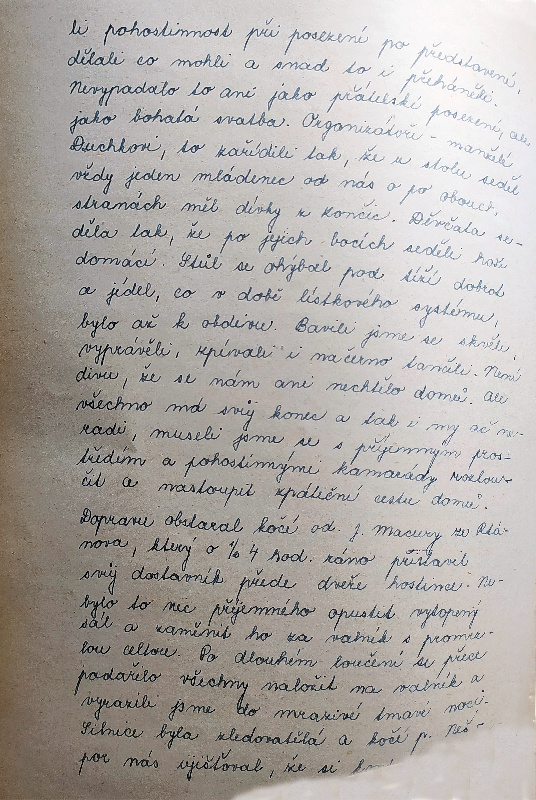 li pohostinnost při posezení po představení,
dělali co mohli a snad to i přeháněli.
Nevypadalo to ani jako přátelské posezení, ale
jako bohatá svatba. Organizátoři - manželé
Duchkovi, to zařídili tak, že u stolu seděl
vždy jeden mládenec od nás a po obouch
stranách měl dívky z Končic. Děvčata se-
děla tak, že po jejich bocích seděli hoši
domácí. Stůl se ohýbal pod tíží dobrot
a jídel, co v době lístkového systému,
bylo až k obdivu. Bavili jsme se skvěle,
vyprávěli, zpívali i načerno tančili. Není
divu, že se nám ani nechtělo domů. Ale
všechno má svůj konec a tak i my ač ne-
radi, museli jsme se s příjemným pros-
tředím a pohostinnými kamarády rozlou-
čit a nastoupit zpáteční cestu domů.
Dopravu obstaral kočí od J. Macury ze Ptá-
nova, který o ½ 4 hod. ráno přistavil
svůj dostavník přede dveře hostince. Ne-
bylo to nic příjemného opustit vytopený
sál a zaměnit ho za valník s promrz-
lou celtou. Po dlouhém loučení se přece
podařilo všechny naložit na valník a
vyrazili jsme do mrazivé tmavé noci.
Silnice byla zledovatělá a kočí p. Neš-
por nás ujišťoval, že si